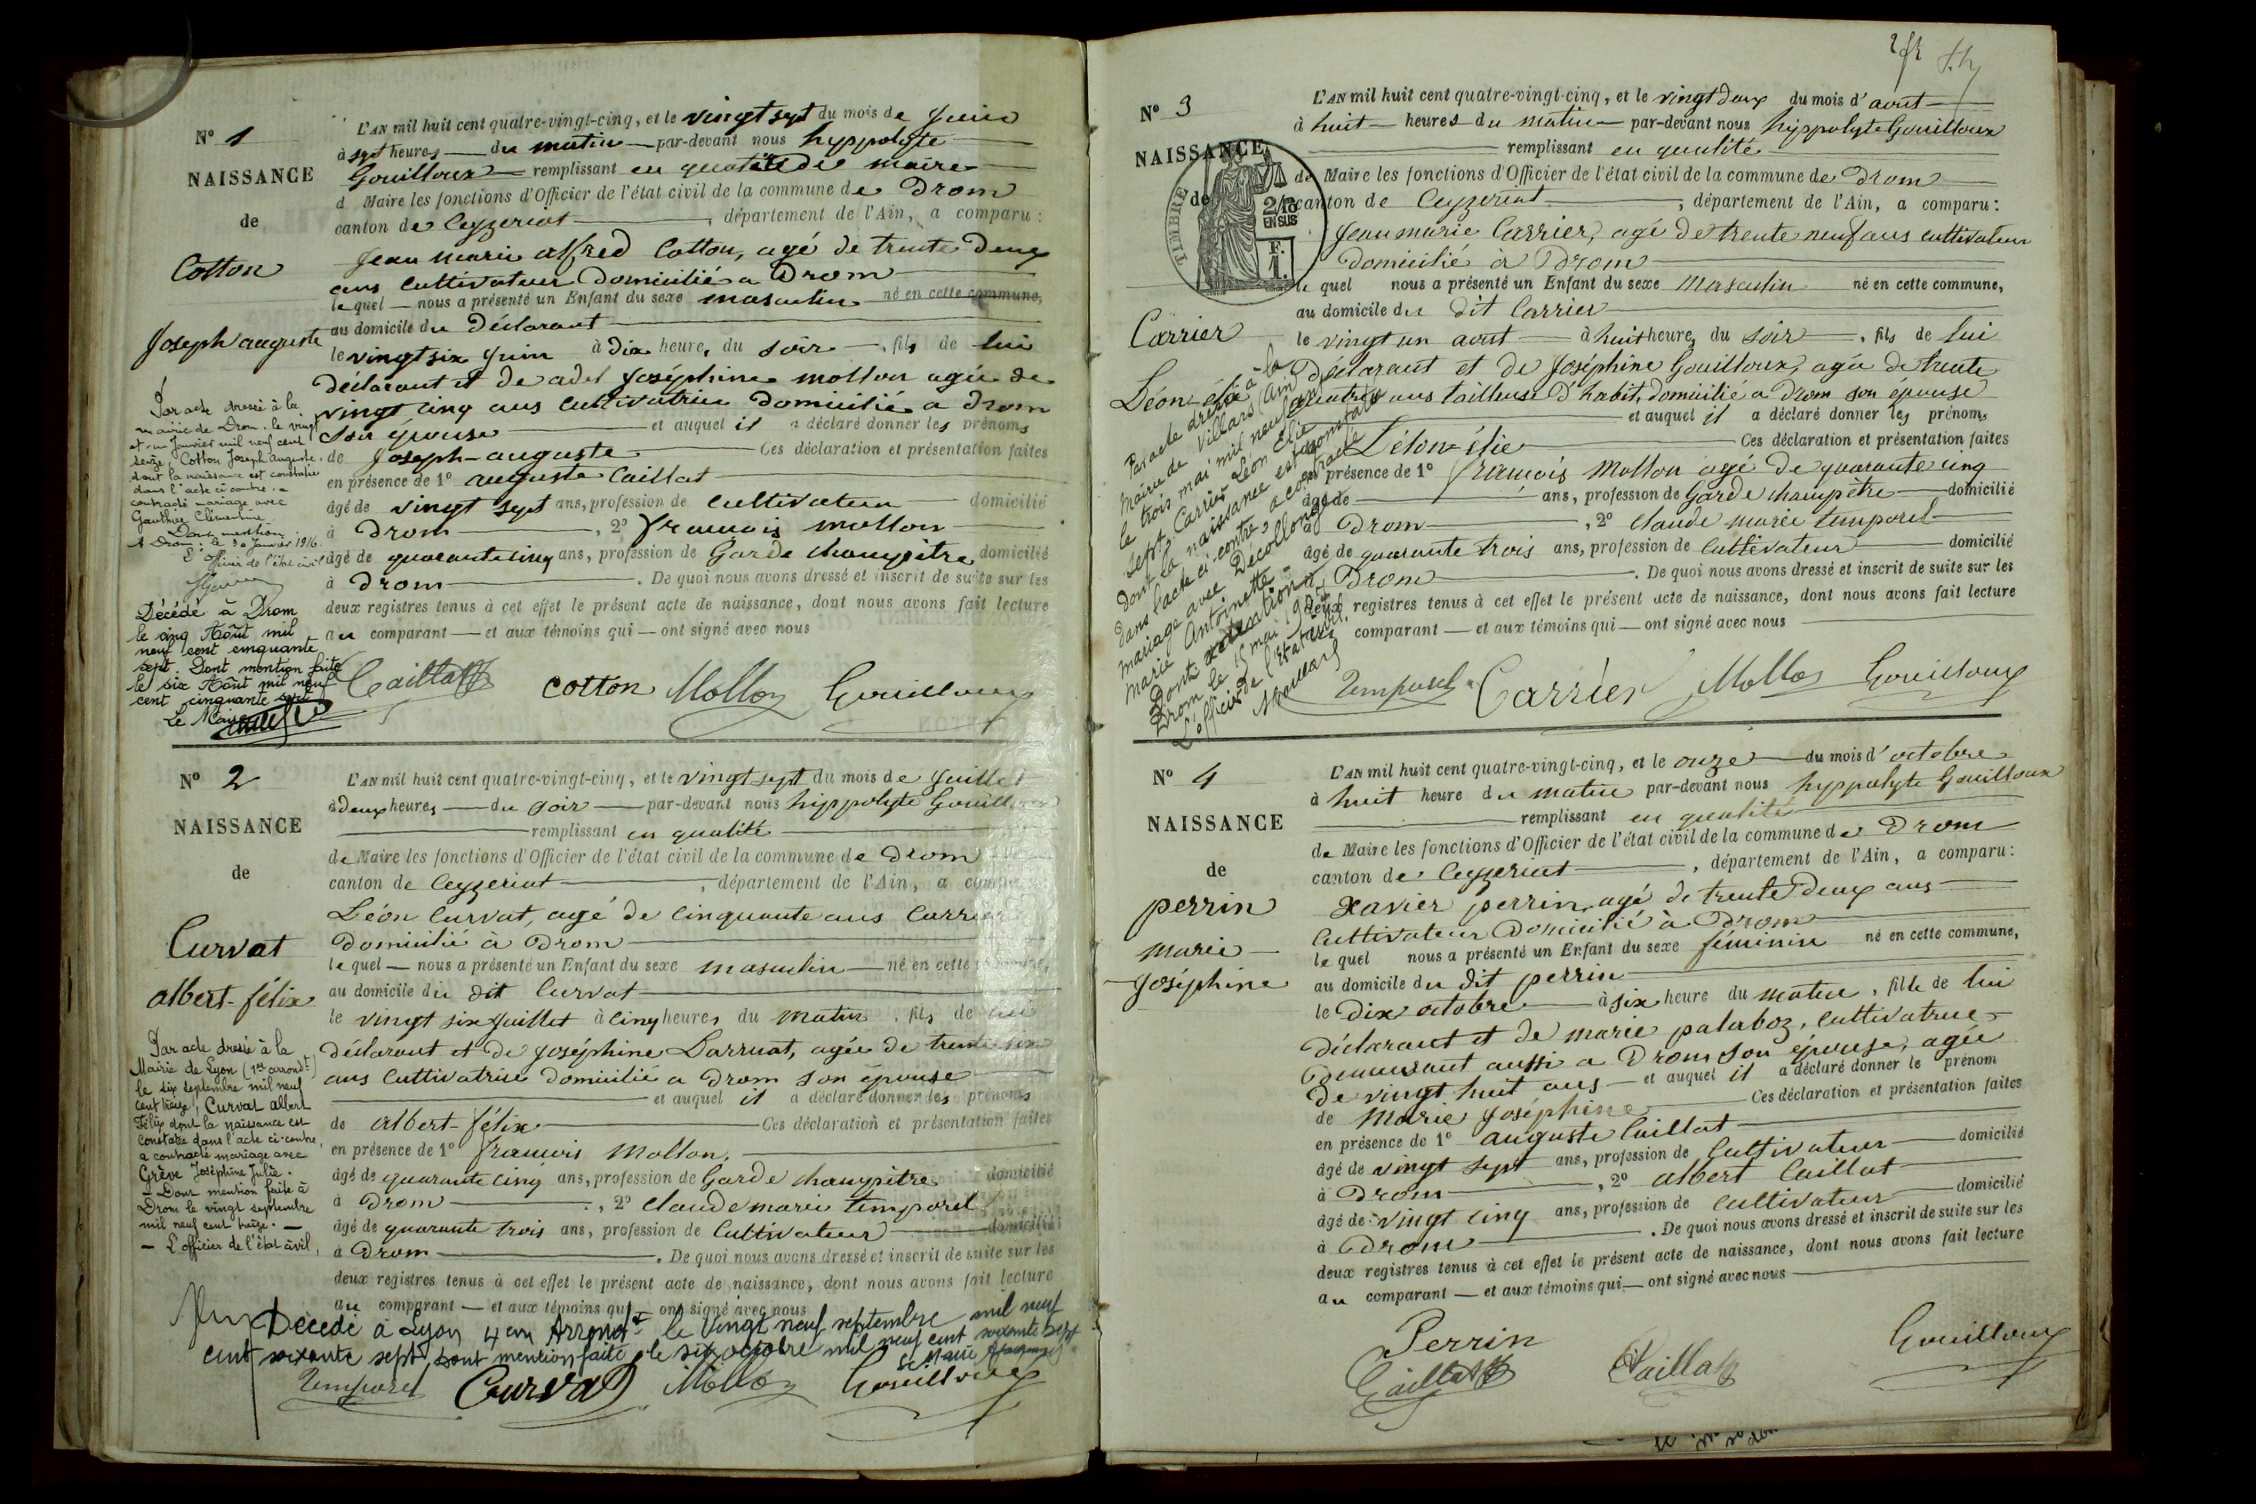 N° 1
NAISSANCE
de
Cotton
Joseph auguste
L'AN mil huit cent quatre-vingt-cinq, et le vingt sept du mois de Juin
à sept heures du matin par-devant nous hyppolyte
Gouilloux remplissant en qualité de maire
d Maire les fonctions d'Officier de l'état civil de la commune de Drom
canton de Ceyzeriat, département de l'Ain, a comparu :
Jean marie alfred Cotton, agé de trente deux
ans cultivateur domicilié a Drom
lequel nous a présenté un Enfant du sexe masculin né en cette commune,
au domicile du Déclarant
le vingt six Juin à dix heures du soir, fils de lui
déclarant et de adel Joséphine mollon agée de
vingt cinq ans cultivatrice domicilié a Drom
son épouse et auquel il a déclaré donner les prénoms
de Joseph-auguste Ces déclaration et présentation faites
en présence de 1° auguste Caillat
âgé de vingt sept ans, profession de cultivateur domicilié
à Drom, 2° francois mollon
âgé de quarante cinq ans, profession de Garde champêtre domicilié
à Drom. De quoi nous avons dressé et inscrit de suite sur les
deux registres tenus à cet effet le présent acte de naissance, dont nous avons fait lecture
au comparant et aux témoins qui ont signé avec nous
Caillat cotton Mollon Gouilloux
Par acte dressé à la
mairie de Drom, le vingt
et un Janvier mil neuf cent
seize, Cotton Joseph auguste
dont la naissance est constatée
dans l'acte ci-contre, a
contracté mariage avec
Gauthier Clémentine
Dont mention
A Drom, le 30 Janvier 1916
L'officier de l'état civil
Décédé à Drom
le cinq Août mil
neuf cent cinquante
sept. Dont mention faite
le six Août mil neuf
cent cinquante sept
Le Maire
N° 2
NAISSANCE
de
Curvat
albert-félix
L'AN mil huit cent quatre-vingt-cinq, et le vingt sept du mois de Juillet
à deux heures du soir par-devant nous hyppolyte Gouilloux
remplissant en qualité
de Maire les fonctions d'Officier de l'état civil de la commune de Drom
canton de Ceyzeriat, département de l'Ain, a comparu
Léon Curvat, agé de cinquante ans Carrier
domicilié à Drom
lequel nous a présenté un Enfant du sexe masculin né en cette commune,
au domicile du dit Curvat
le vingt six Juillet à cinq heures du matin, fils de lui
déclarant et de Joséphine Darruat, agée de trente
ans cultivatrice domicilié a Drom son épouse
et auquel il a déclaré donner les prénoms
de albert-félix Ces déclaration et présentation faites
en présence de 1° francois Mollon,
âgé de quarante cinq ans, profession de Garde champêtre domicilié
à Drom, 2° Claude marie temporel
âgé de quarante trois ans, profession de Cultivateur domicilié
à Drom. De quoi nous avons dressé et inscrit de suite sur les
deux registres tenus à cet effet le présent acte de naissance, dont nous avons fait lecture
au comparant et aux témoins qui ont signé avec nous
Décédé à Lyon 4em Arrondt le vingt neuf septembre mil neuf
cent soixante sept, dont mention faite le six octobre mil neuf cent soixante sept
Le Maire
Temporel Curvat Mollon Gouilloux
Par acte dressé à la
Mairie de Lyon (1er arrondt)
le six septembre mil neuf
cent treize, Curvat albert
Félix dont la naissance est
constatée dans l'acte ci-contre,
a contracté mariage avec
Grève Joséphine Julie.
Dont mention faite à
Drom le vingt septembre
mil neuf cent treize.
L'officier de l'état civil,
N° 3
NAISSANCE
de
TIMBRE
2/10
EN SUS
F.
1.
Carrier
Léon-élie
L'AN mil huit cent quatre-vingt-cinq, et le vingt deux du mois d'aout
à huit heures du matin par-devant nous hyppolyte Gouilloux
remplissant en qualité
de Maire les fonctions d'Officier de l'état civil de la commune de Drom
canton de Ceyzeriat, département de l'Ain, a comparu :
Jean marie Carrier, agé de trente neuf ans cultivateur
domicilié à Drom
lequel nous a présenté un Enfant du sexe Masculin né en cette commune,
au domicile du dit Carrier
le vingt un aout à huit heures du soir, fils de lui
déclarant et de Joséphine Gouilloux, agée de trente
quatre ans tailleuse d'habit, domicilié a Drom son épouse
et auquel il a déclaré donner les prénoms
Léon-élie Ces déclaration et présentation faites
en présence de 1° francois Mollon agé de quarante cinq
âgé de ans, profession de Garde champêtre domicilié
à Drom, 2° claude marie temporel
âgé de quarante trois ans, profession de cultivateur domicilié
à Drom. De quoi nous avons dressé et inscrit de suite sur les
deux registres tenus à cet effet le présent acte de naissance, dont nous avons fait lecture
comparant et aux témoins qui ont signé avec nous
Temporel Carrier Mollon Gouilloux
Par acte dressé à la
Mairie de Villars (Ain)
le trois mai mil neuf cent
sept, Carrier Léon Elie
dont la naissance est constatée
dans l'acte ci-contre, a contracté
mariage avec Decollonge
Marie Antoinette
Dont mention
Drom le 15 mai 1907
L'officier de l'état civil
N° 4
NAISSANCE
de
perrin
marie
Joséphine
L'AN mil huit cent quatre-vingt-cinq, et le onze du mois d'octobre
à huit heure du matin par-devant nous hyppolyte Gouilloux
remplissant en qualité
de Maire les fonctions d'Officier de l'état civil de la commune de Drom
canton de Ceyzeriat, département de l'Ain, a comparu :
xavier perrin, agé de trente deux ans
Cultivateur domicilié à Drom
lequel nous a présenté un Enfant du sexe féminin né en cette commune,
au domicile du dit perrin
le dix octobre à six heure du matin, fille de lui
déclarant et de marie palaboz, cultivatrice
demeurant aussi a Drom son épouse, agée
de vingt huit ans et auquel il a déclaré donner le prénom
de Marie Joséphine Ces déclaration et présentation faites
en présence de 1° auguste Caillat
âgé de vingt sept ans, profession de Cultivateur domicilié
à Drom, 2° albert Caillat
âgé de vingt cinq ans, profession de cultivateur domicilié
à Drom. De quoi nous avons dressé et inscrit de suite sur les
deux registres tenus à cet effet le présent acte de naissance, dont nous avons fait lecture
au comparant et aux témoins qui ont signé avec nous
Perrin Gouilloux
Caillat Caillat